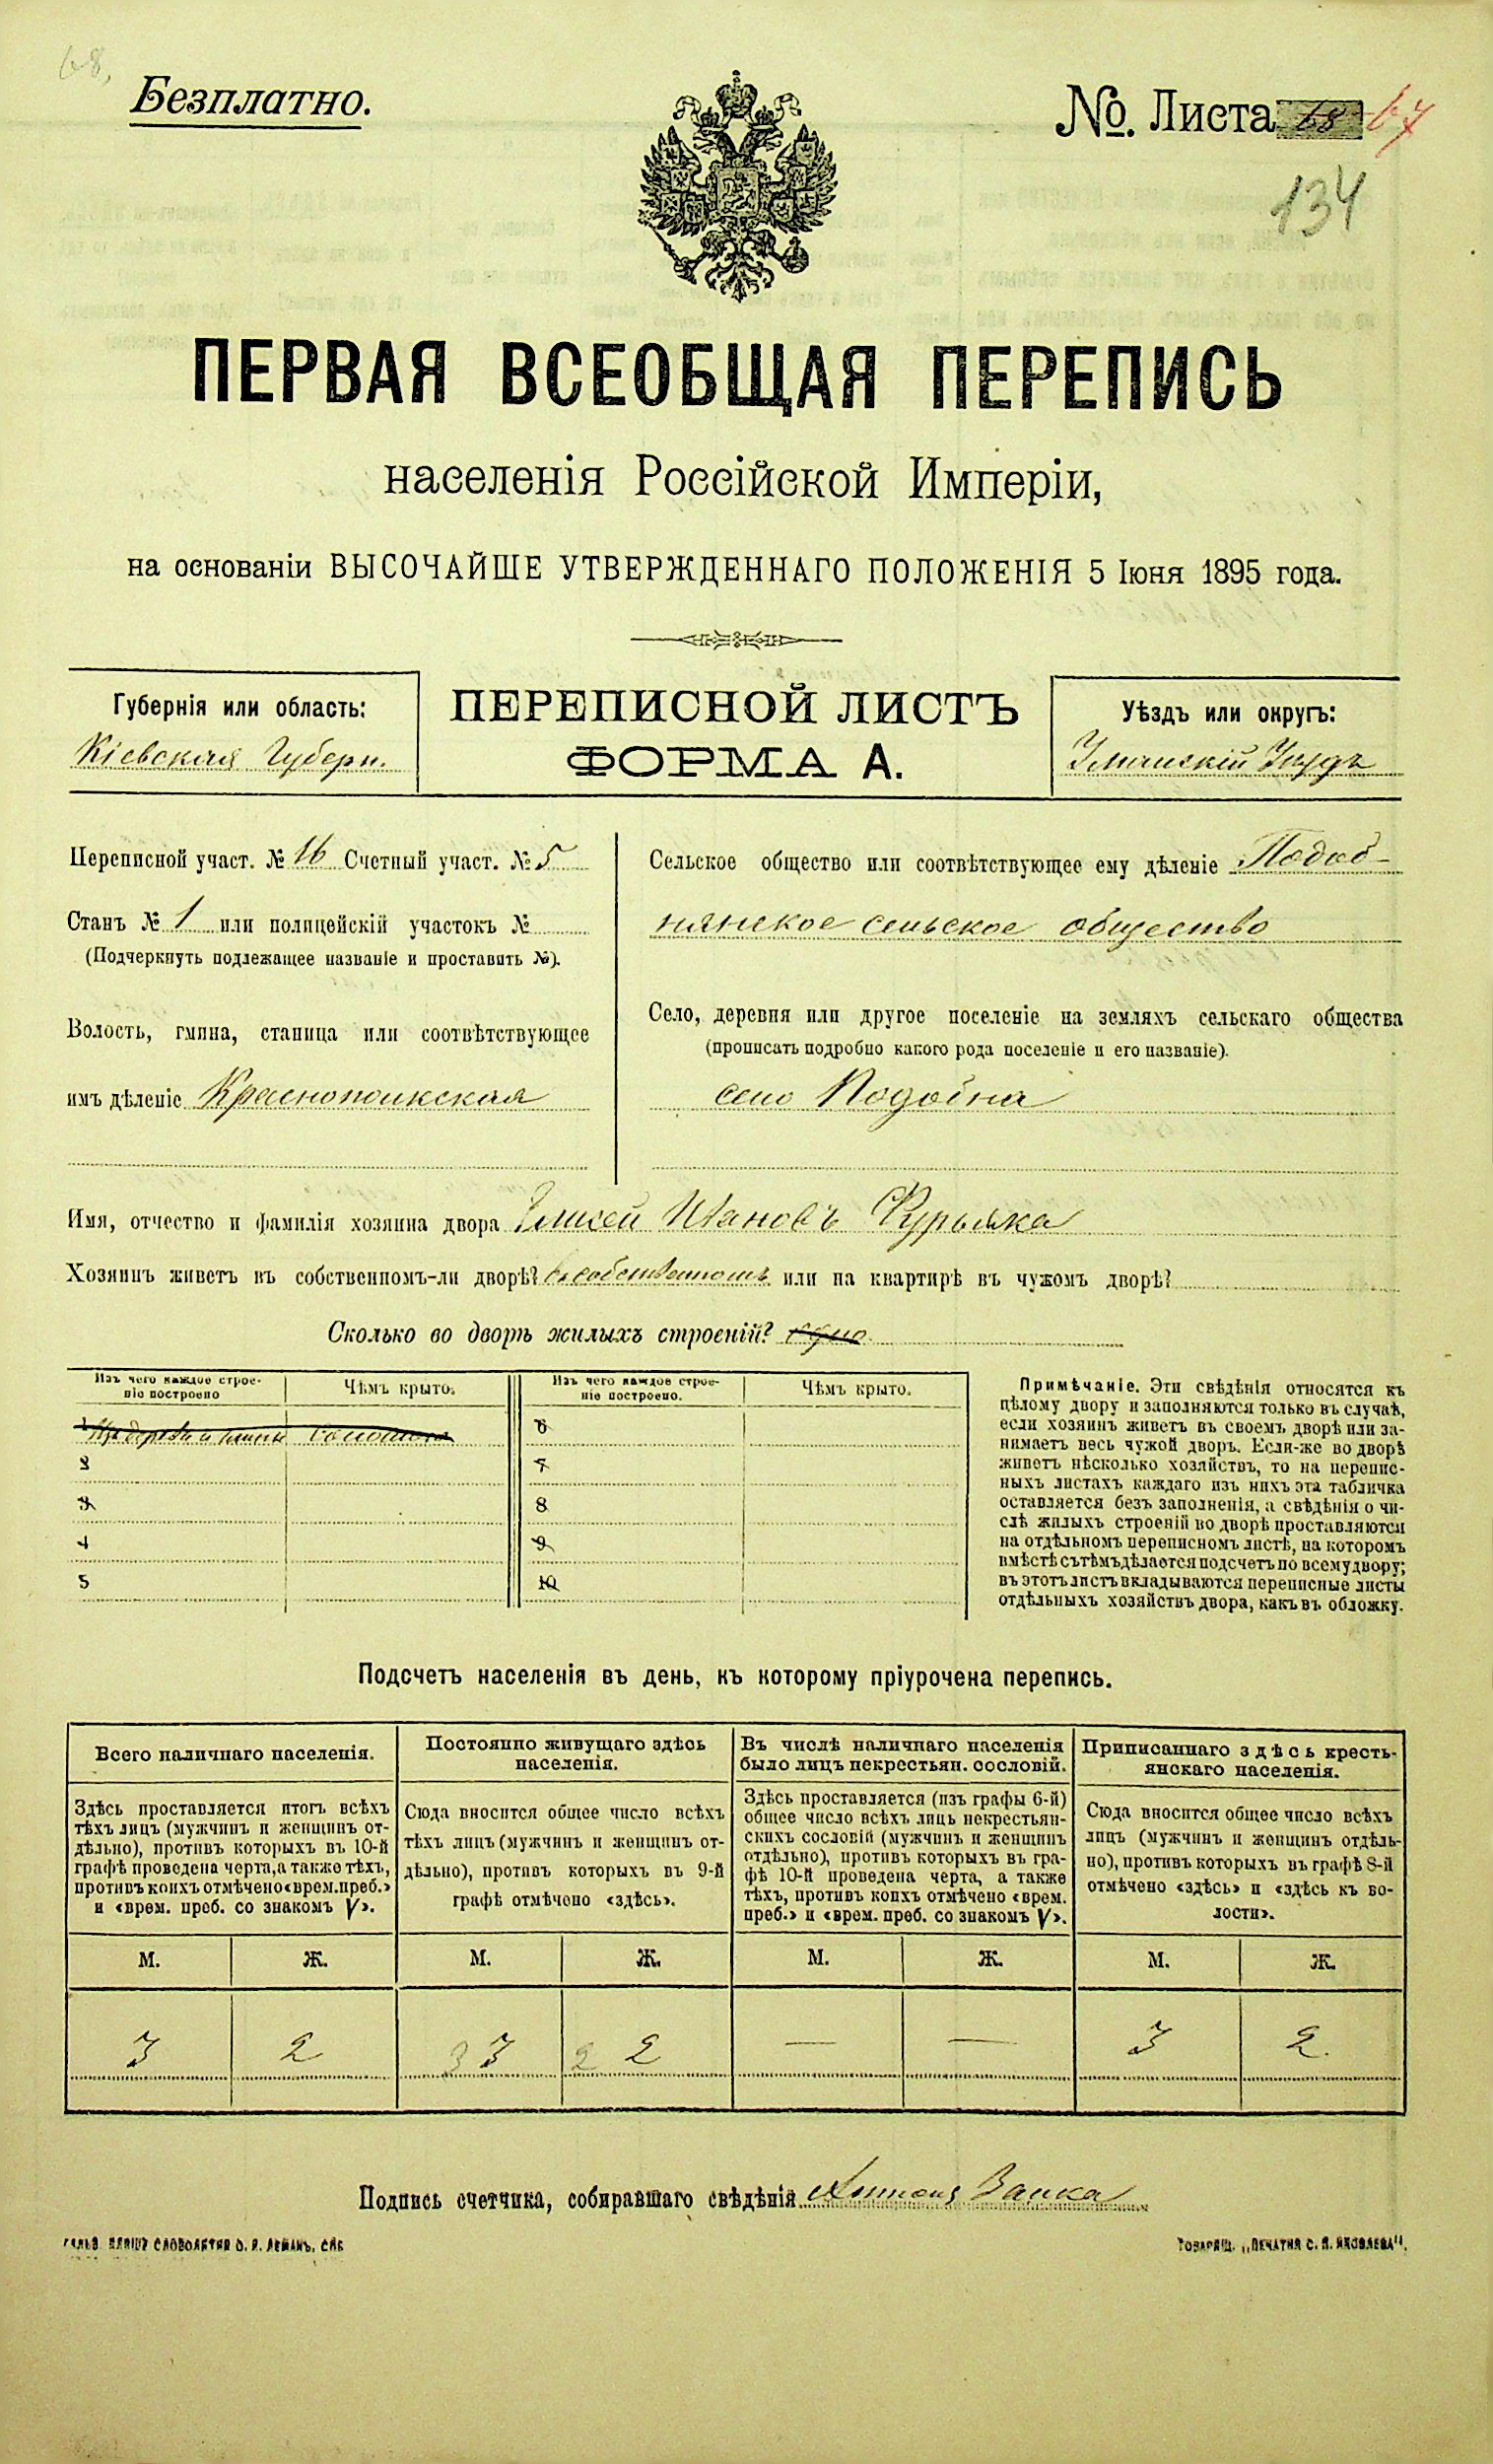 68.
Безплатно.
№. Листа 68 67
134
ПЕРВАЯ ВСЕОБЩАЯ ПЕРЕПИСЬ
населенія Россійской Имперіи,
на основаніи ВЫСОЧАЙШЕ УТВЕРЖДЕННАГО ПОЛОЖЕНІЯ 5 Іюня 1895 года.
Губернія или область:
Кіевская Губерн.
ПЕРЕПИСНОЙ ЛИСТЪ
ФОРМА А.
Уѣздъ или округъ:
Уманскій Уѣздъ
Переписной участ. № 16 Счетный участ. № 5
Станъ № 1 или полицейскій участокъ №
(Подчеркнуть подлежащее названіе и проставить №).
Волость, гмина, станица или соотвѣтствующее
имъ дѣленіе Краснополкская
Сельское общество или соотвѣтствующее ему дѣленіе Подоб-
нянское сельское общество
Село, деревня или другое поселеніе на земляхъ сельскаго общества
(прописать подробно какого рода поселеніе и его названіе).
село Подобна
Имя, отчество и фамилія хозяина двора Елисей Ивановъ Фурьяка
Хозяинъ живетъ въ собственномъ-ли дворѣ? въ собственномъ или на квартирѣ въ чужомъ дворѣ?
Сколько во дворѣ жилыхъ строеній? одно
Изъ чего каждое строе-
ніе построено
Чѣмъ крыто.
Изъ чего каждое строе-
ніе построено.
Чѣмъ крыто.
1 Изъ дерева и глины соломою
2
3
4
5
6
7
8
9
10
Примѣчаніе. Эти свѣдѣнія относятся къ
цѣлому двору и заполняются только въ случаѣ,
если хозяинъ живетъ въ своемъ дворѣ или за-
нимаетъ весь чужой дворъ. Если-же во дворѣ
живетъ нѣсколько хозяйствъ, то на перепис-
ныхъ листахъ каждаго изъ нихъ эта табличка
оставляется безъ заполненія, а свѣдѣнія о чи-
слѣ жилыхъ строеній во дворѣ проставляются
на отдѣльномъ переписномъ листѣ, на которомъ
вмѣстѣ съ тѣмъ дѣлается подсчетъ по всему двору;
въ этотъ листъ вкладываются переписные листы
отдѣльныхъ хозяйствъ двора, какъ въ обложку.
Подсчетъ населенія въ день, къ которому пріурочена перепись.
Всего наличнаго населенія.
Здѣсь проставляется итогъ всѣхъ
тѣхъ лицъ (мужчинъ и женщинъ от-
дѣльно), противъ которыхъ въ 10-й
графѣ проведена черта, а также тѣхъ,
противъ коихъ отмѣчено «врем. преб.»
и «врем. преб. со знакомъ V».
Постоянно живущаго здѣсь
населенія.
Сюда вносится общее число всѣхъ
тѣхъ лицъ (мужчинъ и женщинъ от-
дѣльно), противъ которыхъ въ 9-й
графѣ отмѣчено «здѣсь».
Въ числѣ наличнаго населенія
было лицъ некрестьян. сословій.
Здѣсь проставляется (изъ графы 6-й)
общее число всѣхъ лицъ некрестьян-
скихъ сословій (мужчинъ и женщинъ
отдѣльно), противъ которыхъ въ гра-
фѣ 10-й проведена черта, а также
тѣхъ, противъ коихъ отмѣчено «врем.
преб.» и «врем. преб. со знакомъ V».
Приписаннаго здѣсь кресть-
янскаго населенія.
Сюда вносится общее число всѣхъ
лицъ (мужчинъ и женщинъ отдѣль-
но), противъ которыхъ въ графѣ 8-й
отмѣчено «здѣсь» и «здѣсь къ во-
лости».
М. Ж. М. Ж. М. Ж. М. Ж.
3 2 3 3 2 2 — — 3 2.
Подпись счетчика, собиравшаго свѣдѣнія Антонъ Заика
ГАЛЬВ. КЛИШЕ СЛОВОЛИТНИ О. И. ЛЕМАНЪ, СПБ
ТОВАРИЩ. „ПЕЧАТНЯ С. П. ЯКОВЛЕВА".